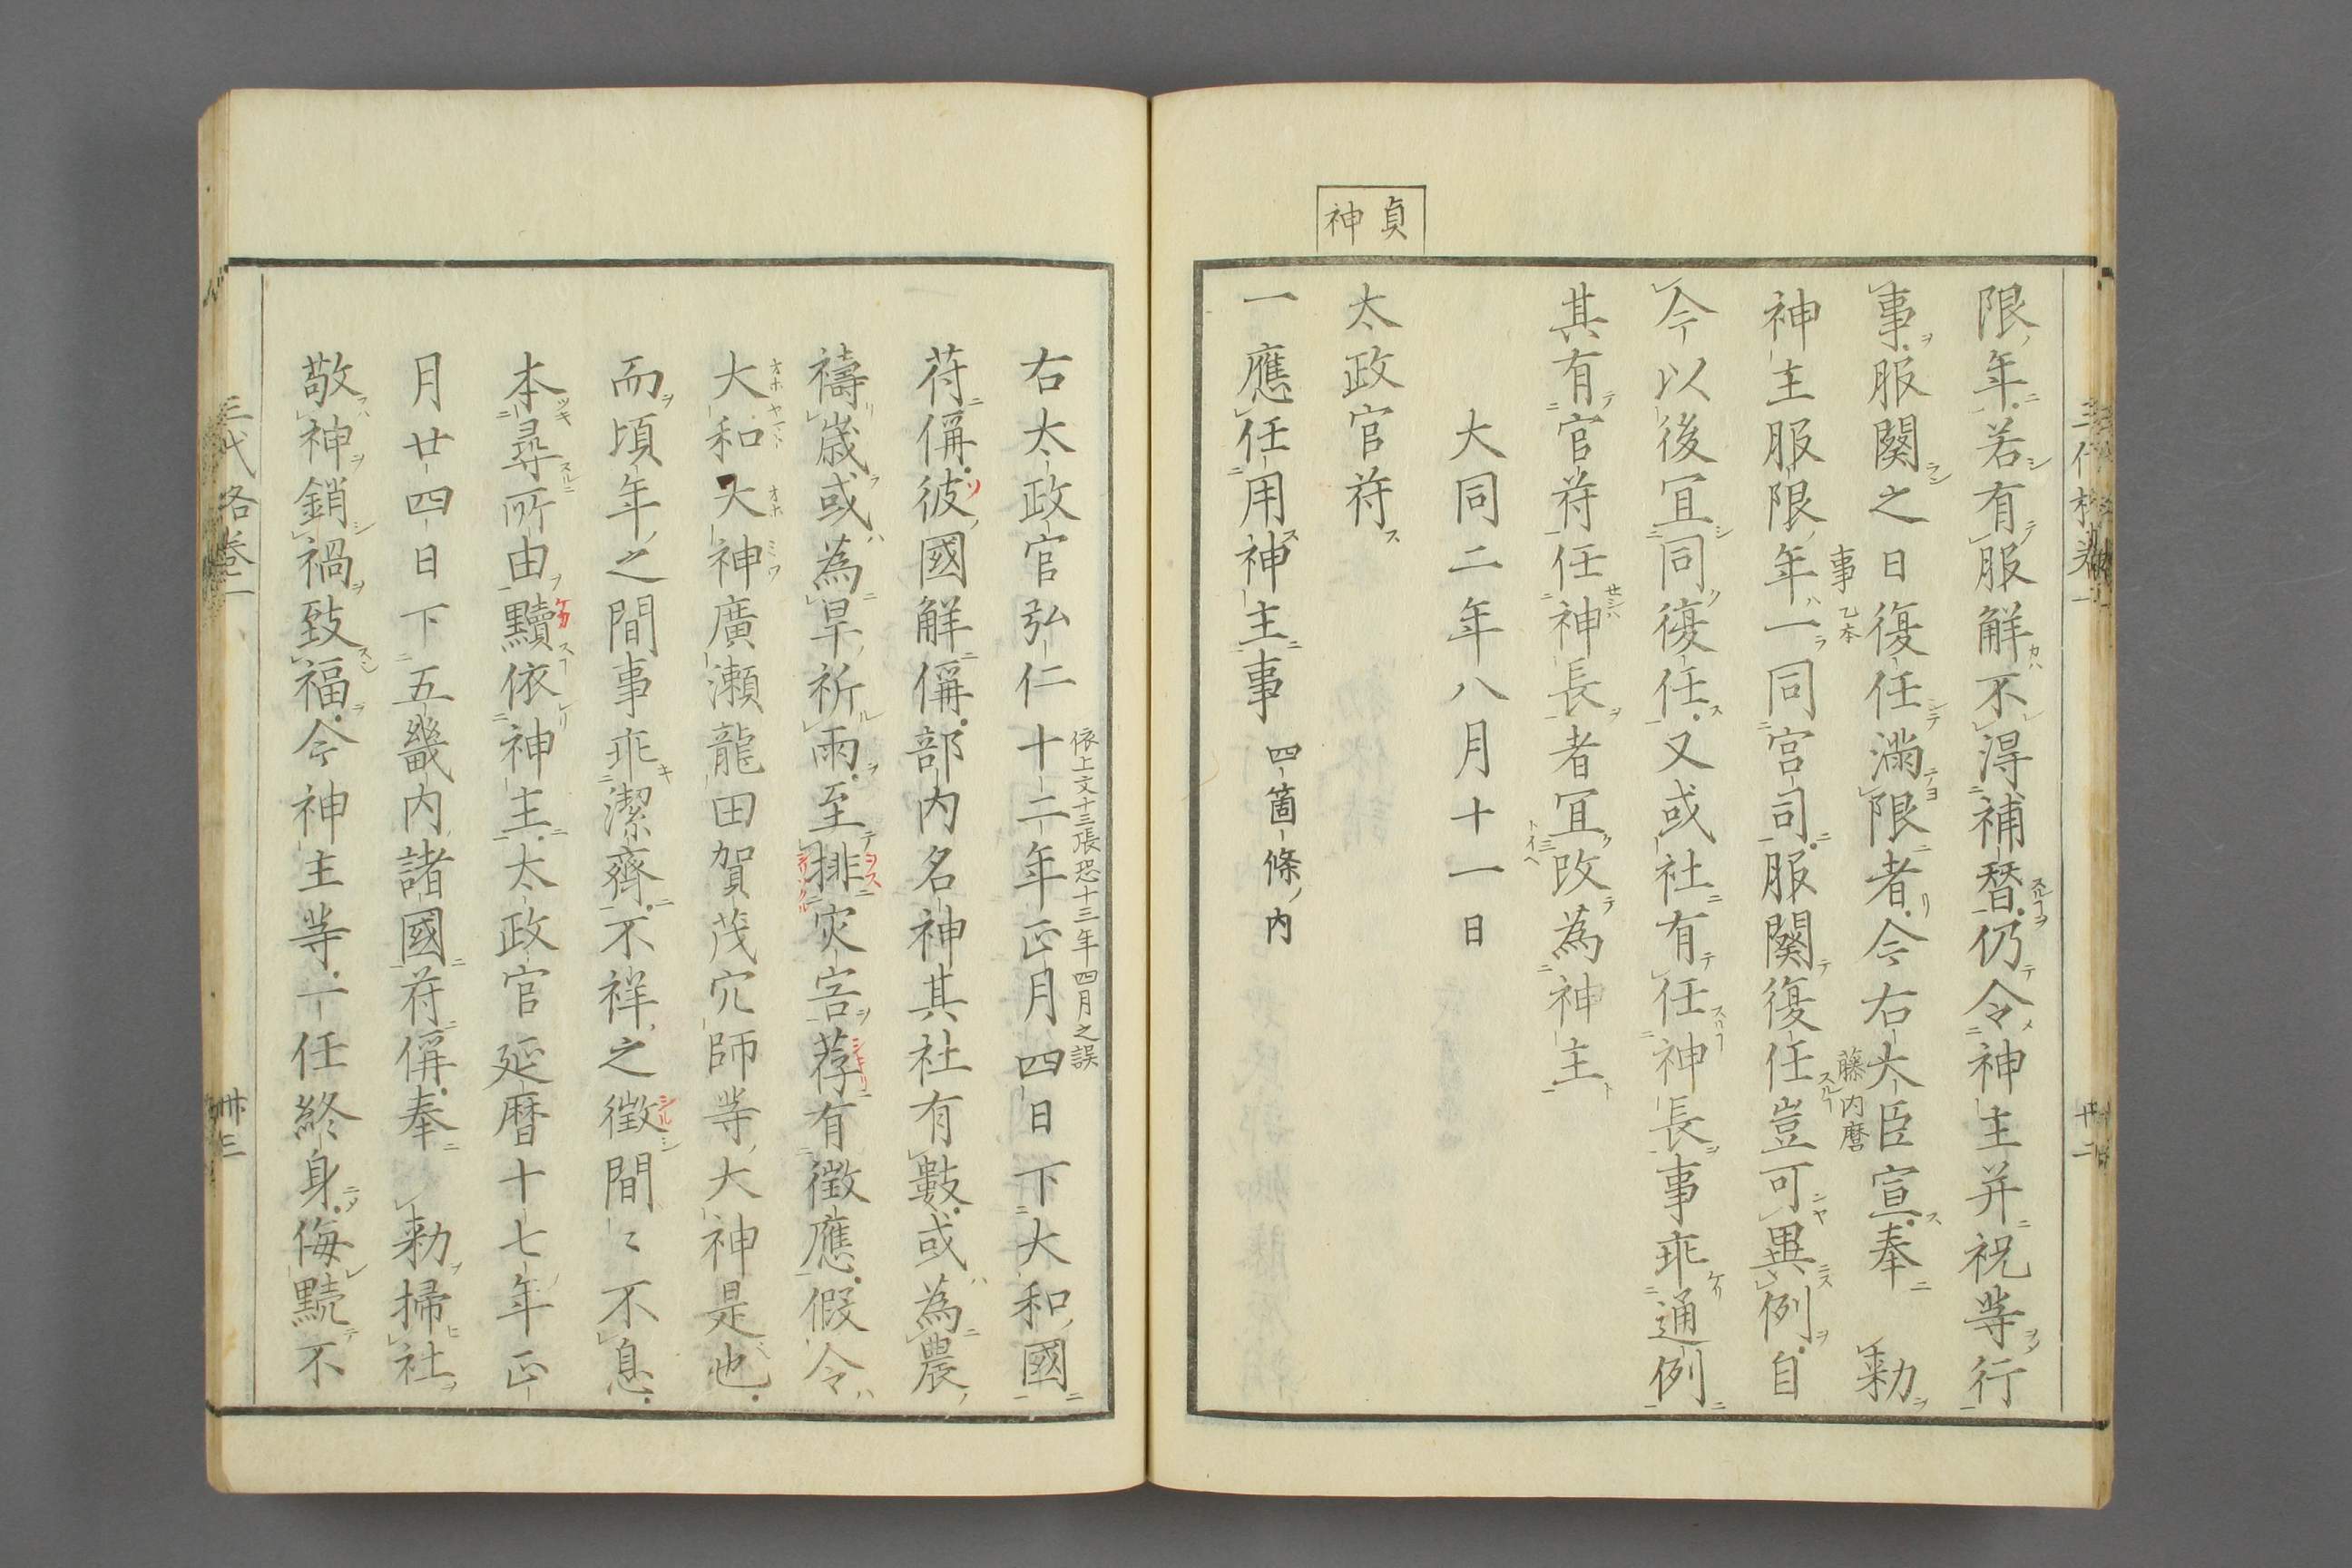 貞
神
限年若有服解不得補替仍令神主并祝等行
事服闋之日復任滿限者今右大臣宣奉　勅
藤内麿
神主服限年一同宮司服闋復任豈可異例自
事乙本
今以後冝同復任又或社有任神長事乖通例
其有官符任神長者冝改為神主
大同二年八月十一日
太政官符
一應任用神主事　四箇條内
右太政官弘仁十二年正月四日下大和國
依上文十三張恐十三年四月之誤
符偁彼國解偁部内名神其社有數或為農
禱歳或為旱祈雨至排灾害荐有徴應假令
大和大神廣瀬龍田賀茂穴師等大神是也
而頃年之間事乖潔齊不祥之徴間〻不息
本尋所由黷依神主太政官延暦十七年正
月廿四日下五畿内諸國符偁奉　勅掃社
敬神銷禍致福今神主等一任終身侮黷不
三代格卷一